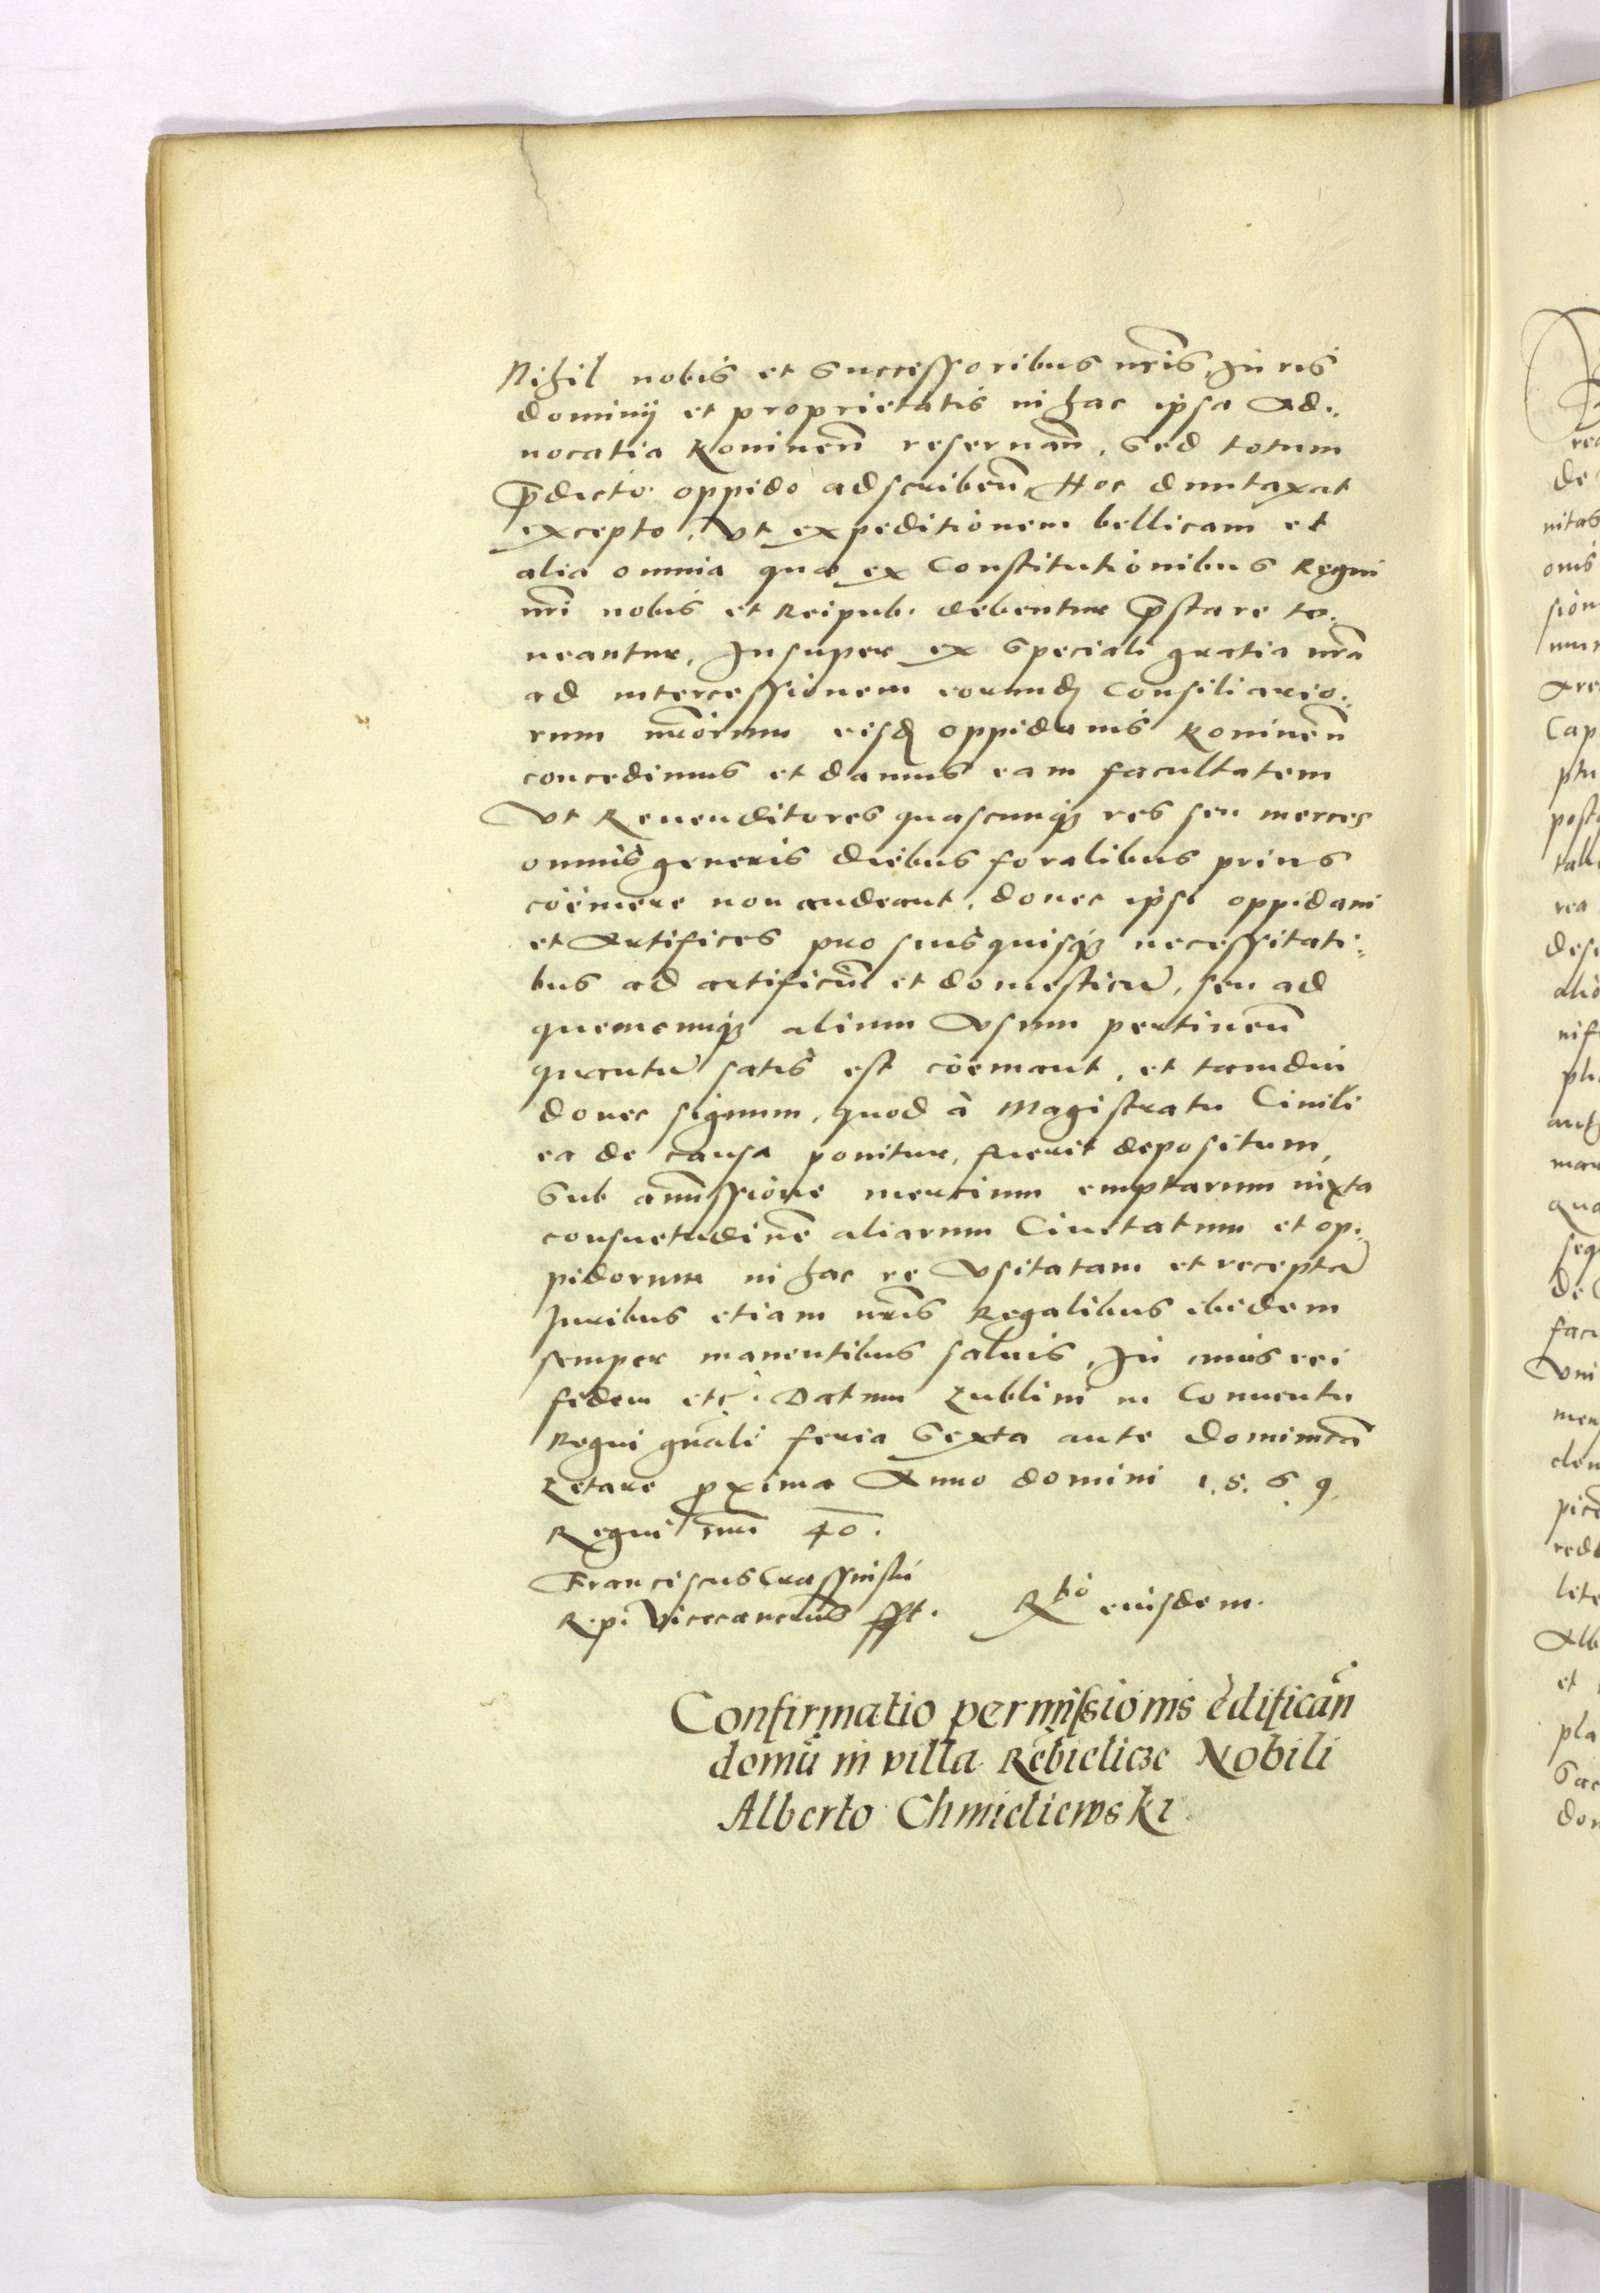 Nihil nobis et successoribus nr̃is, Iuris
dominij et proprietatis in hac ipsa Ad:
uocatia Koninen̄ reseruan̄. Sed totum
p̄dicto oppido adscriben̄. Hoc duntaxat
excepto, Vt expeditionem bellicam et
alia omnia quæ ex Constitutionibus Regni
nr̃i nobis et Reipub. debentur p̄stare te:
neantur, Insuper ex speciali gratia nr̃a
ad intercessionem eorund. Consiliario:
rum nr̃orum eisd. oppidanis Koninen̄
concedimus et damus eam facultatem
Vt Reuenditores quascunq3 res seu merces
omnis generis diebus foralibus prius
coëmere non audeant, donec ipsi oppidani
et Artifices pro suis quisq3 necessitati:
bus ad artificiū et domesticū, seu ad
quemcunq3 alium Vsum pertinen̄
quantū satis est coëmant, et tamdiu
donec signum, quod à Magistratu Ciuili
ea de causa ponitur, fuerit depositum,
Sub amissione mercium emptarum iuxta
consuetudinē aliarum Ciuitatum et op:
pidorum in hac re Vsitatam et receptā
Iuribus etiam nr̃is Regalibus ibidem
semper manentibus saluis, In cuius rei
fidem etc̨. Datum Lublini in Conuentu
Regni gn̄ali feria Sexta ante Dominicā
Letare proxima Anno domini 1.5.6.9.
Regni nr̃i 40.
Franciscus Crassinski
R. p. Vicecancellarius sst. Rtio eiusdem.
Confirmatio permissionis ędifican̄
domū in villa Rębielicze Nobili
Alberto Chmieliewski.